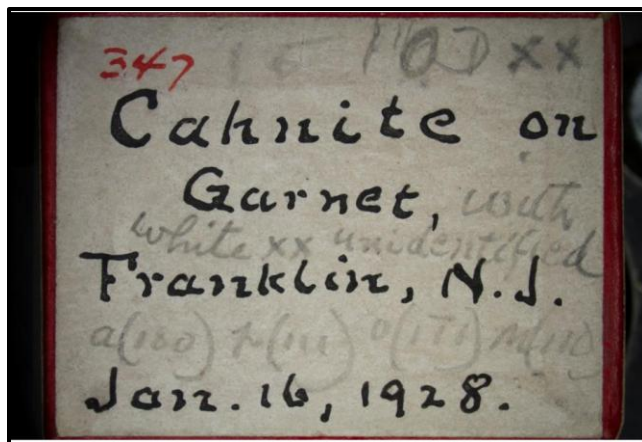 347
xx
Cahnite on
Garnet, with
white xx unidentified
Franklin, N.J.
a(100) p(111) o(1̄1̄1) m(110)
Jan. 16, 1928.